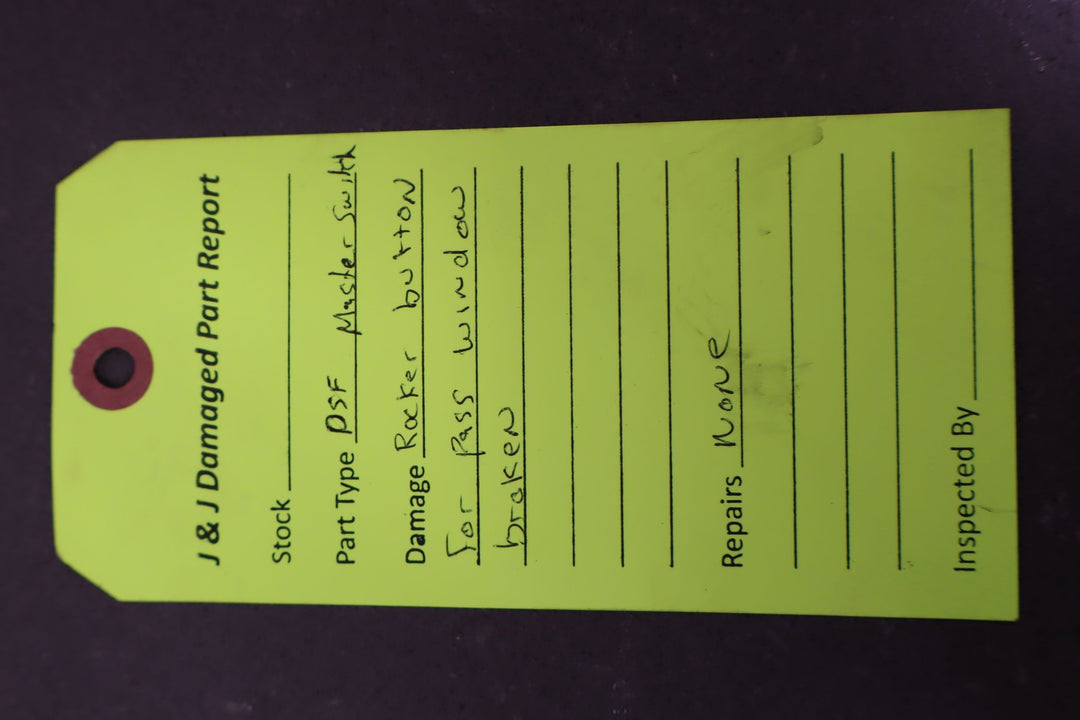 J & J Damaged Part Report
Stock
Part Type DSF Master Swith
Damage Rocker button
for pass window
broken
Repairs none
Inspected By